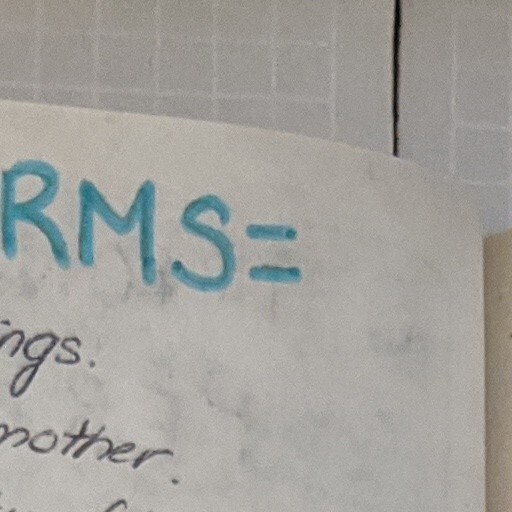 RMS=
ngs.
mother.